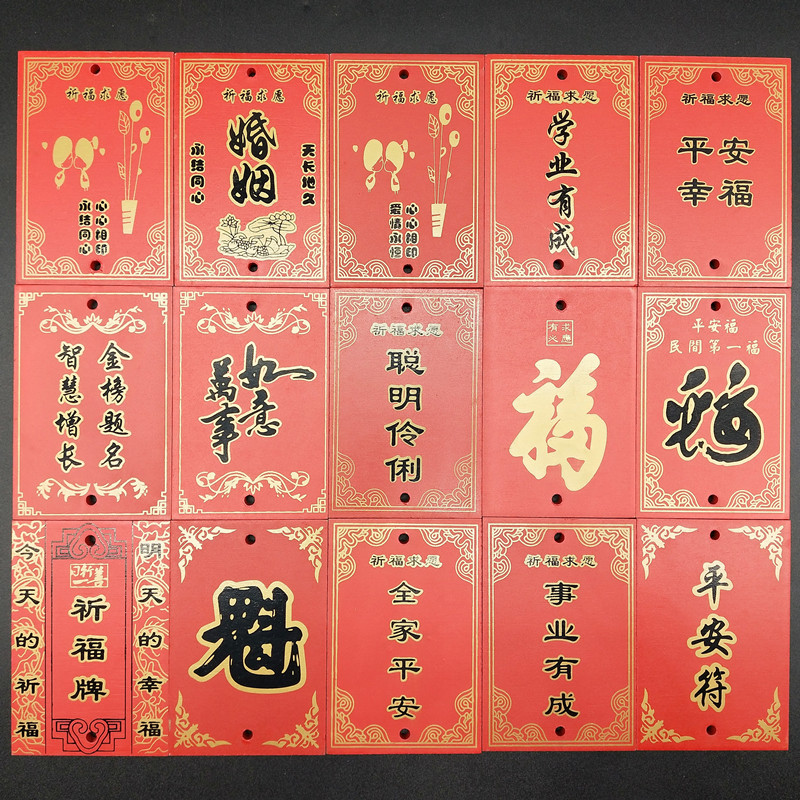 祈福求愿
心心相印
永结同心
天长地久
婚姻
永结同心
祈福求愿
心心相印
爱情永恒
祈福求愿
学业有成
祈福求愿
平安
幸福
金榜题名
智慧增长
萬事
如意
祈福求愿
聪明伶俐
有求
必應
福
平安福
民間第一福
福
今天的祈福
日行一善
祈福牌
明天的幸福
魁
祈福求愿
全家平安
祈福求愿
事业有成
平安符